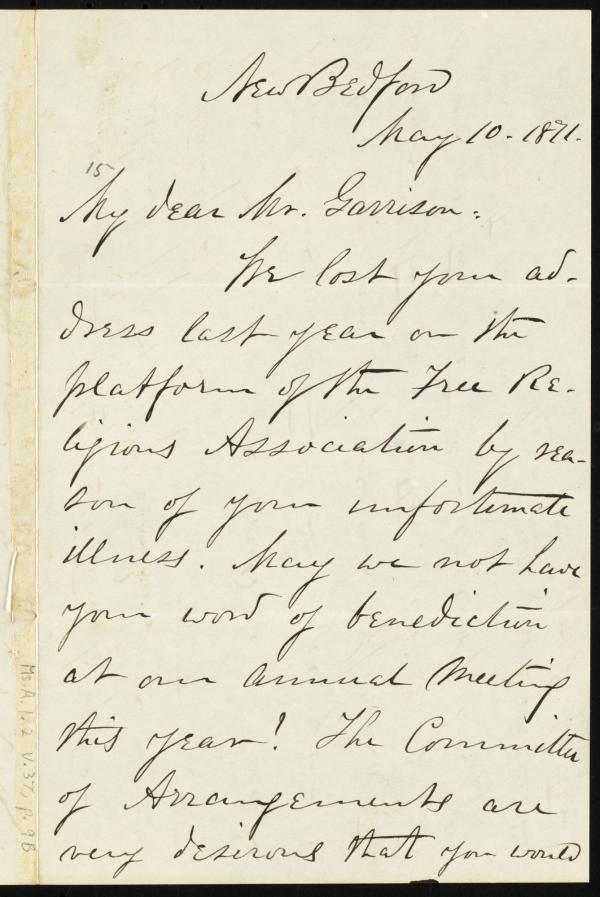 New Bedford
May 10. 1871.
15
My dear Mr. Garrison:
We lost your ad-
dress last year on the
platform of the Free Re-
ligious Association by rea-
son of your unfortunate
illness. May we not have
your word of benediction
at our annual meeting
this year? The Committee
of Arrangements are
very desirous that you would
Ms.A.1.2 v.37, p.9B